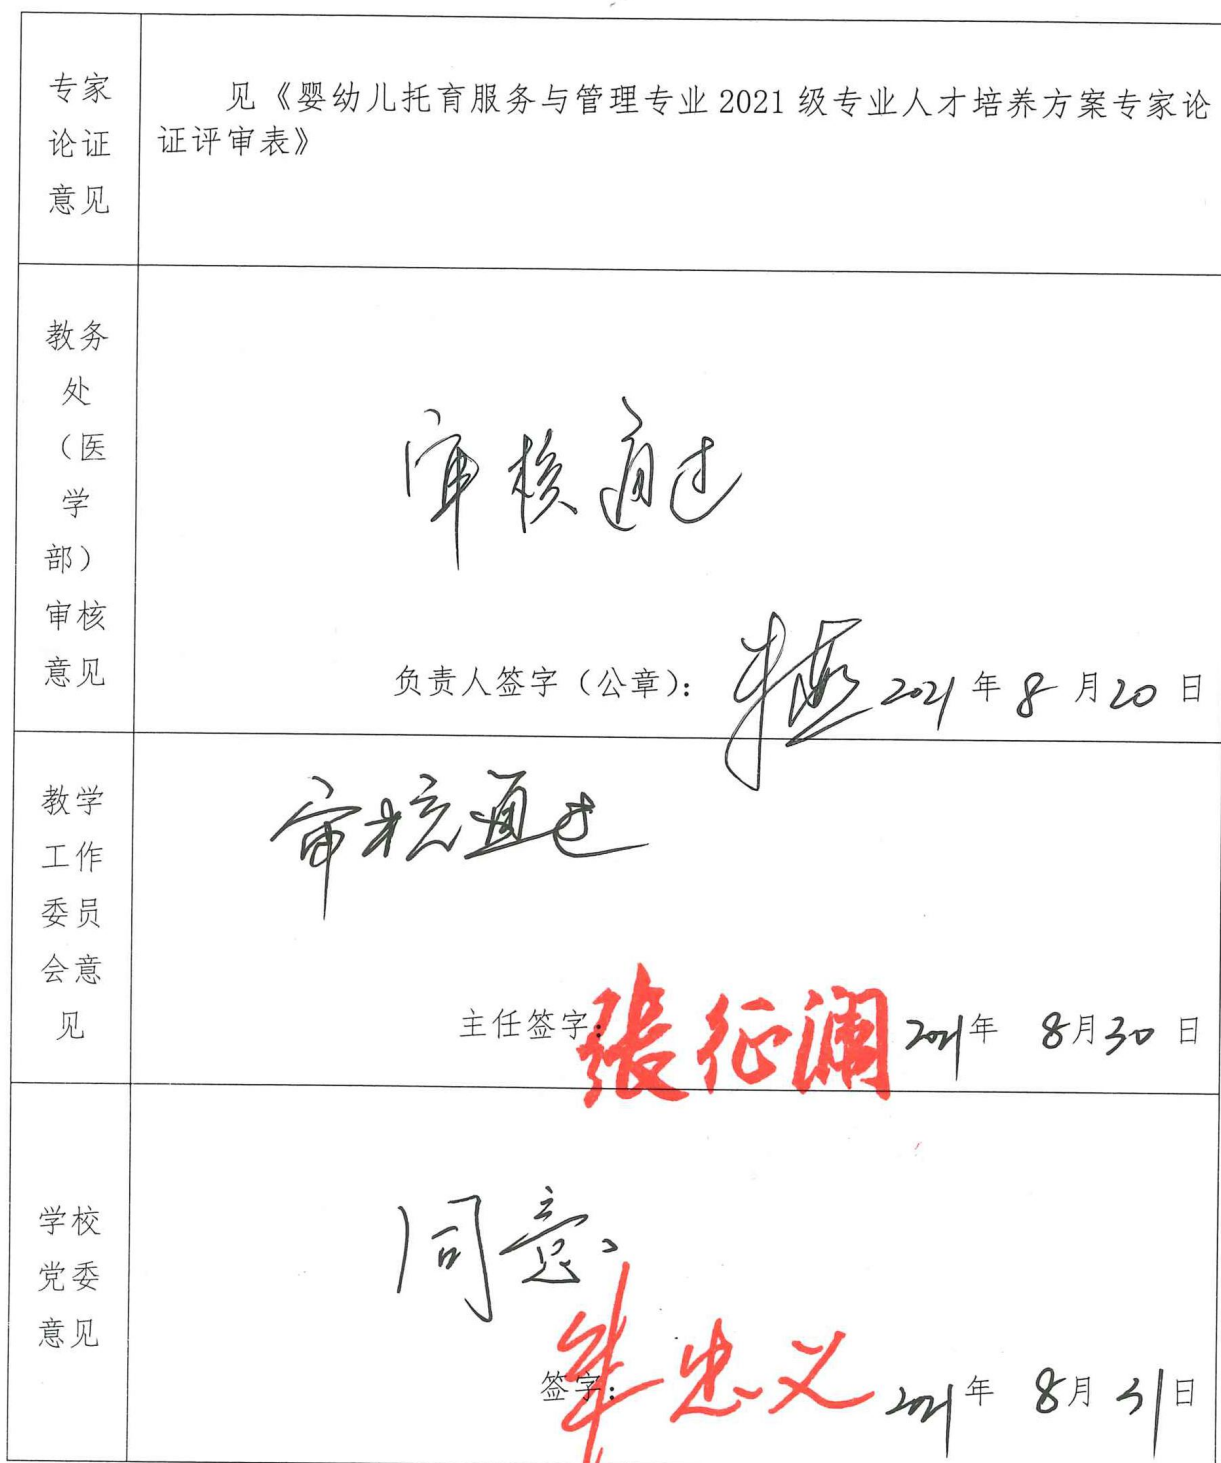 专家
论证
意见
见《婴幼儿托育服务与管理专业 2021 级专业人才培养方案专家论
证评审表》
教务
处
（医
学
部）
审核
意见
审核通过
负责人签字（公章）： 2021 年 8 月 20 日
教学
工作
委员
会意
见
审核通过
主任签字：張征澜 2021年 8月30日
学校
党委
意见
同意。
签字：牟忠义 2021年 8月31日